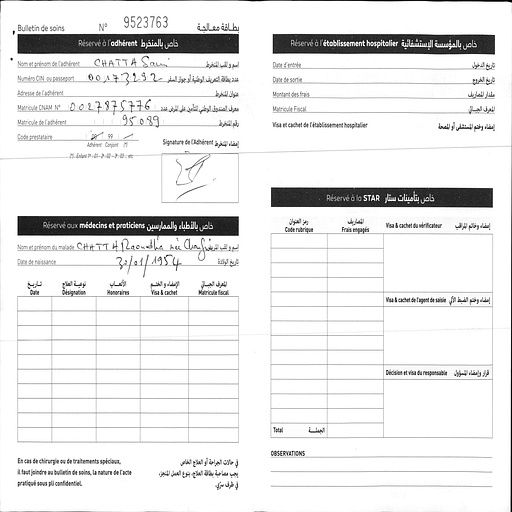 Bulletin de soins N° 9523763 بطاقة معالجة
Réservé à l'adhérent خاص بالمنخرط
Nom et prénom de l'adhérent CHATTA Sami إسم و لقب المنخرط
Numéro CIN, ou passeport 00173292 عدد بطاقة التعريف الوطنية أو جواز السفر
Adresse de l'adhérent عنوان المنخرط
Matricule CNAM N° 0027875776 معرف الصندوق الوطني للتأمين على المرض عدد
Matricule de l'adhérent 95089 رقم المنخرط
Code prestataire 99
Adhérent Conjoint (*)
Signature de l'Adhérent إمضاء المنخرط
Réservé aux médecins et praticiens خاص بالأطباء والممارسين
Nom et prénom du malade CHATTA Raoudha née إسم و لقب المريض
Date de naissance 30/01/1954 تاريخ الولادة
تاريخ نوعية العلاج الأتعاب الإمضاء و الختم المعرف الجبائي
Date Désignation Honoraires Visa & cachet Matricule fiscal
En cas de chirurgie ou de traitements spéciaux,
il faut joindre au bulletin de soins, la nature de l'acte
pratiqué sous pli confidentiel.
في حالات الجراحة أو العلاج الخاص
يجب مصاحبة بطاقة العلاج، بنوع العمل المنجز،
في ظرف سري.
Réservé à l'établissement hospitalier خاص بالمؤسسة الإستشفائية
Date d'entrée تاريخ الدخول
Date de sortie تاريخ الخروج
Montant des frais مقدار المصاريف
Matricule Fiscal المعرف الجبائي
Visa et cachet de l'établissement hospitalier إمضاء وختم المستشفى أو المصحة
Réservé à la STAR خاص بتأمينات ستار
رمز العنوان المصاريف
Code rubrique Frais engagés
Visa & cachet du vérificateur إمضاء وخاتم المراقب
Visa & cachet de l'agent de saisie إمضاء وختم الضبط الآلي
Décision et visa du responsable قرار وإمضاء المسؤول
Total الجملة
OBSERVATIONS